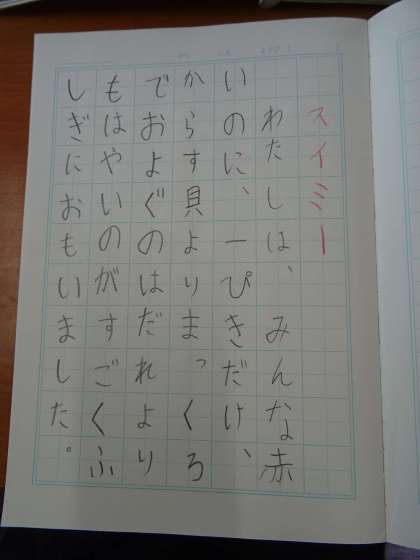 スイミー
わたしは、みんな赤
いのに、一ぴきだけ、
からす貝よりまっくろ
でおよぐのはだれより
もはやいのがすごくふ
しぎにおもいました。